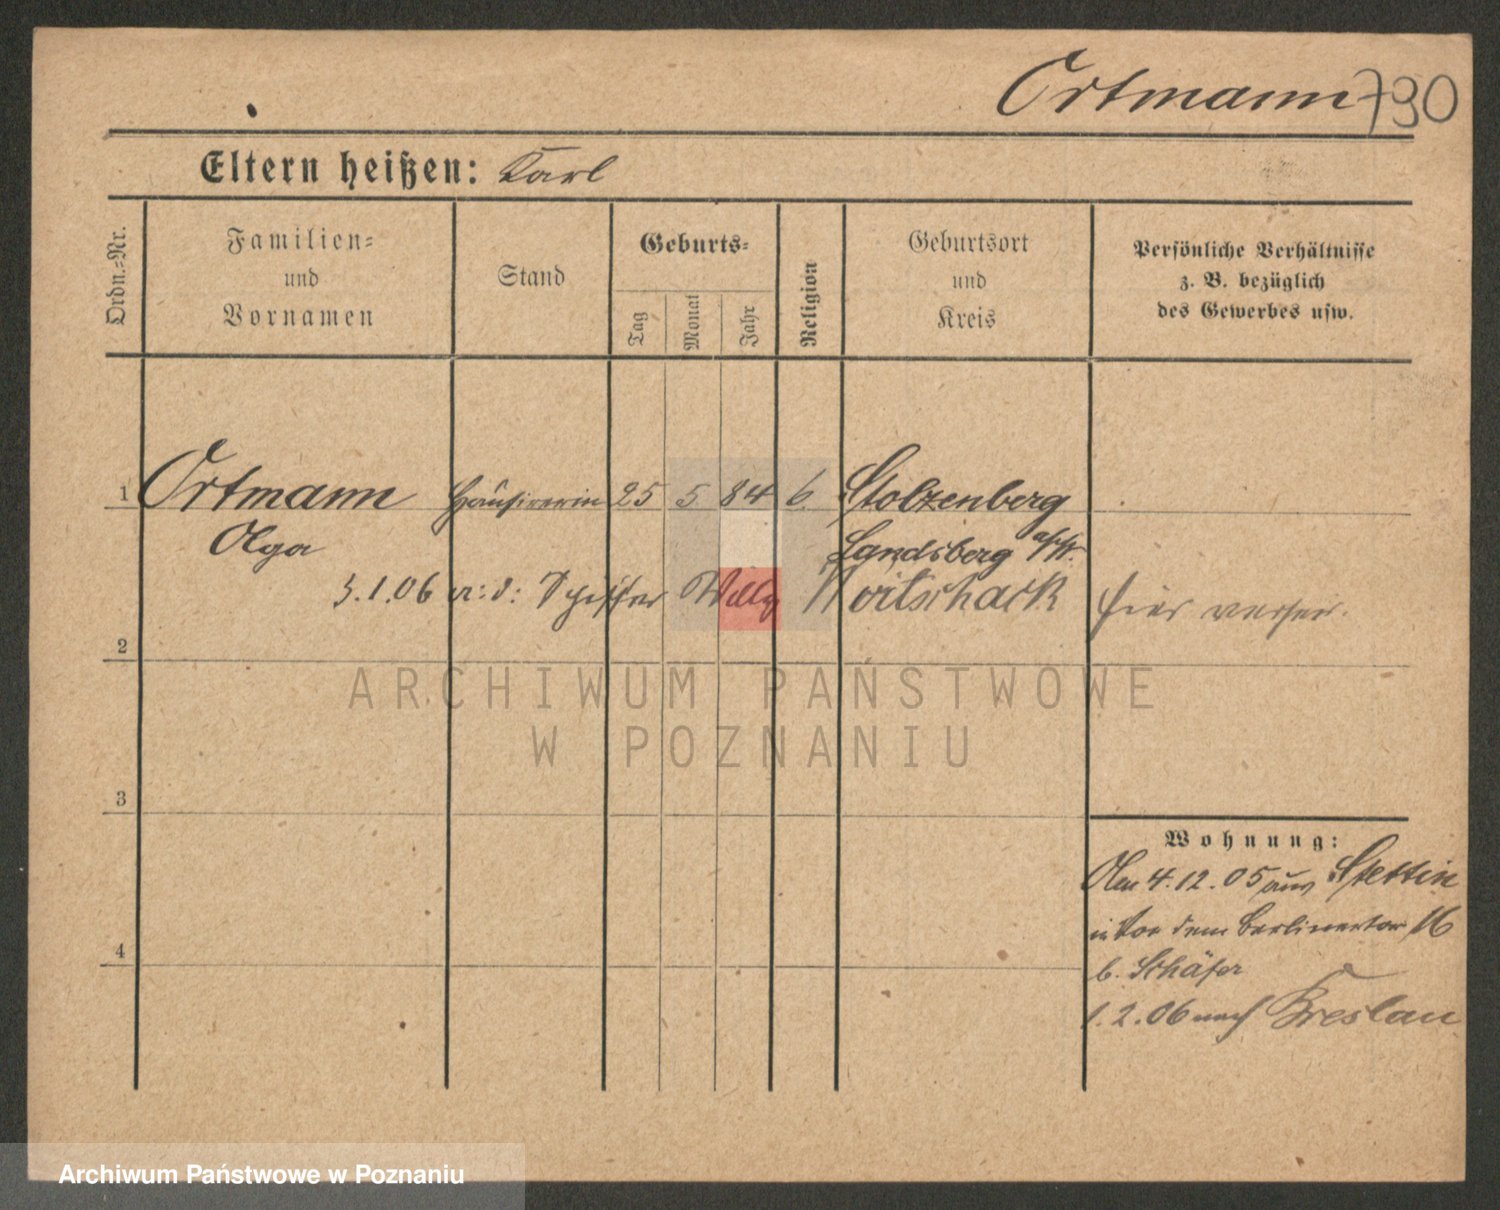 Ortmann 790
Eltern heißen: Karl
Ordn.-Nr.
Familien-
und
Vornamen
Stand
Geburts-
Tag
Monat
Jahr
Religion
Geburtsort
und
Kreis
Persönliche Verhältnisse
z. B. bezüglich
des Gewerbes usw.
1 Ortmann Hausirerin 25 5 84 6. Stolzenberg
Olga Landsberg a/W.
3.1.06 a: d: Schiffer Willy Woitschack hier
2
ARCHIWUM PAŃSTWOWE
W POZNANIU
3
Wohnung:
4.12.05 aus Stettin
in Vor dem Berlinertor 16
b. Schäfer
4
1.2.06 nach Breslau
Archiwum Państwowe w Poznaniu